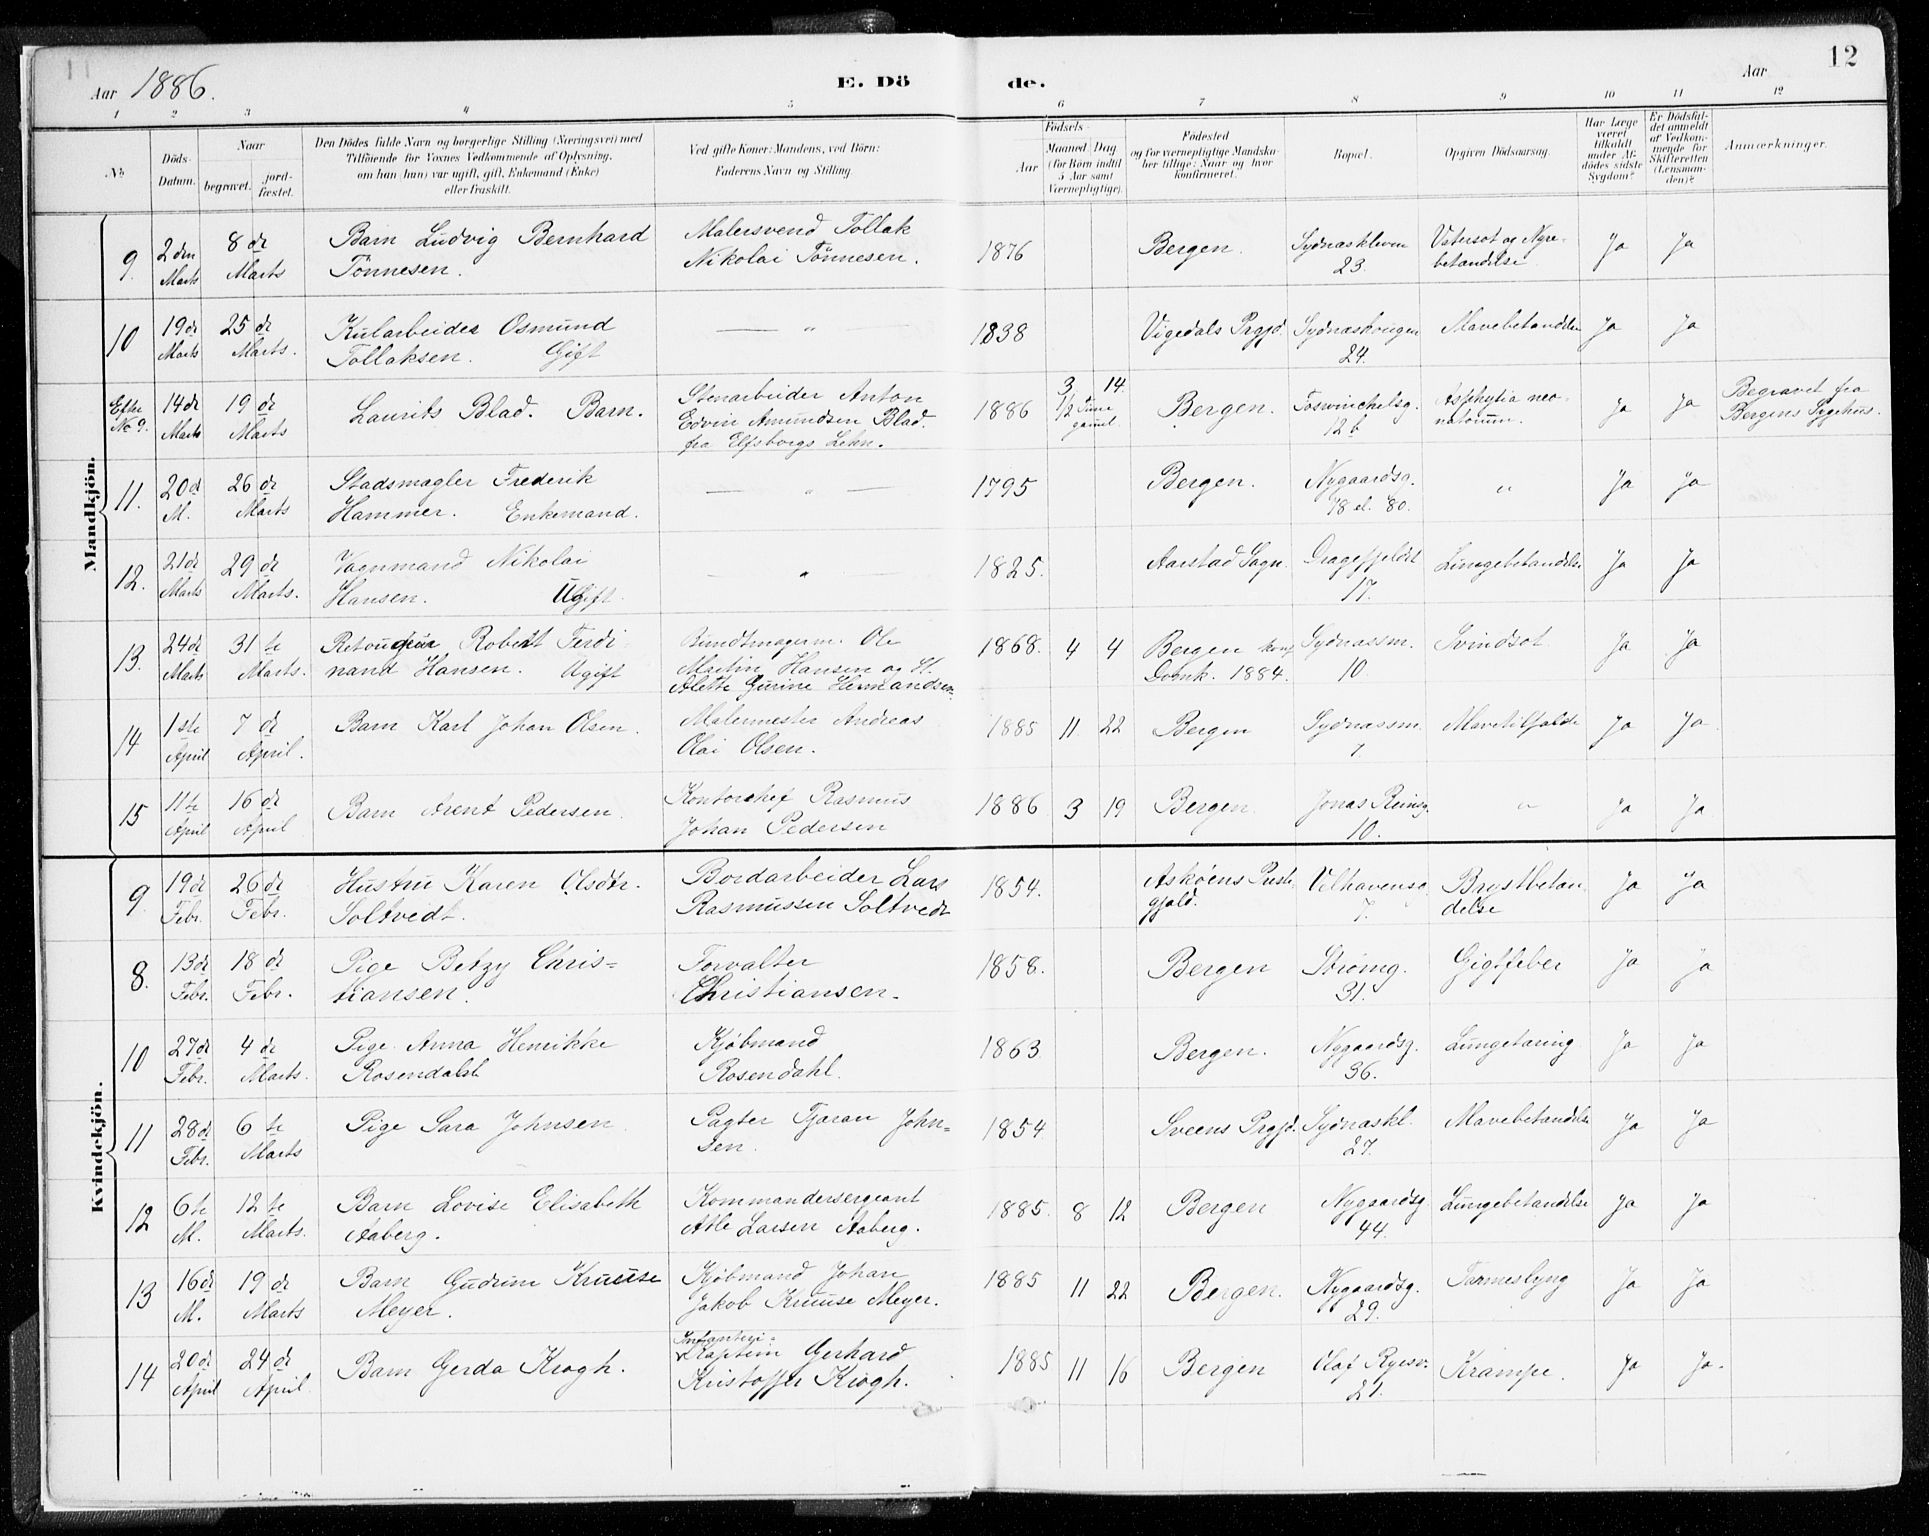 11
Aar 1886.
E. Dö
de.
Aar
12
1 2 3 4 5 6 7 8 9 10 11 12
№
Döds-Datum.
Naar
begravet.
jordfæstet.
Den Dödes fulde Navn og borgerlige Stilling (Næringsvei) med
Tilföiende för Voxnes Vedkommende af Oplysning,
om han (hun) var ugift, gift, Enkemand (Enke)
eller fraskilt.
Ved gifte Koner: Mandens, ved Börn:
Faderens Navn og Stilling.
Födsels-
Aar
Maaned Dag
(for Börn indtil
5 Aar samt
Værnepligtige).
Födested
og for værnepligtige Mandska-
ber tillige: Naar og hvor
konfirmeret.
Bopæl.
Opgiven Dödsaarsag.
Har Læge
været
tilkaldt
under Af-
dödes sidste
Sygdom?
Er Dödsfal-
det anmeldt
af Vedkom-
mende for
Skifteretten
(Lensman-
den)?
Anmærkninger.
Mandkjön.
9. 2den Marts 8de Marts Barn Ludvig Bernhard Malersvend Tollak 1876 Bergen. Sydnaskleven Vatersot og Nyre-
Tönnesen. Nikolai Tönnesen. 23. betændelse Ja Ja
10 19de Marts 25de Marts. Kularbeider Osmund — " — 1838 Vigedals Prgjd. Sydnaskougen Mavebetændelse Ja Ja
Tollaksen. Gift 24.
Efter No 9. 14de Marts 19de Marts Laurits Blad. Barn. Stenarbeider Anton 1886 3 14. Bergen. 12b Asphyxia neo- Ja Ja Begravet fra
Edvin Amundsen Blad. 1/2 Time natorum. Bergens Sygehus.
fra Elfsborgs Lehn. gaml.
11. 20de M. 26de Marts Stadsmægler Frederik — " — 1795 Bergen. Nygaardsg. " Ja Ja
Hammer. Enkemand. 78 el. 80.
12. 21de Marts 29de Marts. Vognmand Nikolai — " — 1825. Aarstad Sogn. Dragefjeldet Lungebetændelse Ja Ja
Hansen. Ugift. 17.
13. 24de Marts 31te Marts. Robert Ferdi- Bundtmagerm. Ole 1868. 4 4 Bergen konf. Sydnassm. Svindsot Ja Ja
nand Hansen. Ugift Martin Hansen og H. Domk. 1884. 10.
Alette Gurine Hermandsen.
14 1ste April 7de April. Barn Karl Johan Olsen. Malermester Andreas 1885 11. 22 Bergen Sydnassm. Ja Ja
Olai Olsen.
15 11te April 16de April Barn Arent Pedersen. Kontorchef Rasmus 1886 3 19 Bergen. Jonas Reinsg. " Ja Ja
Johan Pedersen 10.
Kvindekjön.
9. 19de Febr. 26de Febr. Hustru Karen Olsdtr. Bordarbeider Lars 1854. Askøens Præste- Velhavensg. Brystbetæn- Ja Ja
Soltvedt. Rasmussen Soltvedt gjæld. 7. delse
8. 13de Febr. 18de Febr. Pige Betzy Chris- Forvalter 1858. Bergen Strömg. Gigtfeber Ja Ja
tiansen. Christiansen. 31.
10 27de Febr. 4de Marts. Pige Anna Henrikke Kjöbmand 1863 Bergen. Nygaardsg. Lungetæring Ja Ja
Rosendahl Rosendahl. 36.
11 28de Febr. 6te Marts Pige Sara Johnsen. Pagter Tjeran John- 1854 Sveens Prgjd. Sydnaskl. Mavebetændelse Ja Ja
sen. 27.
12 6te M. 12te Marts. Barn Lovise Elisabeth Kommandersergeant 1885. 8 12 Bergen Nygaardsg. Lungebetændelse Ja Ja
Aaberg. Atle Larsen Aaberg. 44.
13 16de M. 19de Marts Barn Gudrun Kruuse Kjöbmand Johan 1885 11 22 Bergen. Nygaardsg. Tarmeslyng Ja Ja
Meyer. Jakob Kruuse Meyer. 29.
14 20de April 24de April. Barn Gerda Krogh. Infanteri-
Kaptein Gerhard 1885 11 16 Bergen Olaf Ryesv. Krampe. Ja Ja.
Kristoffer Krogh. 21.